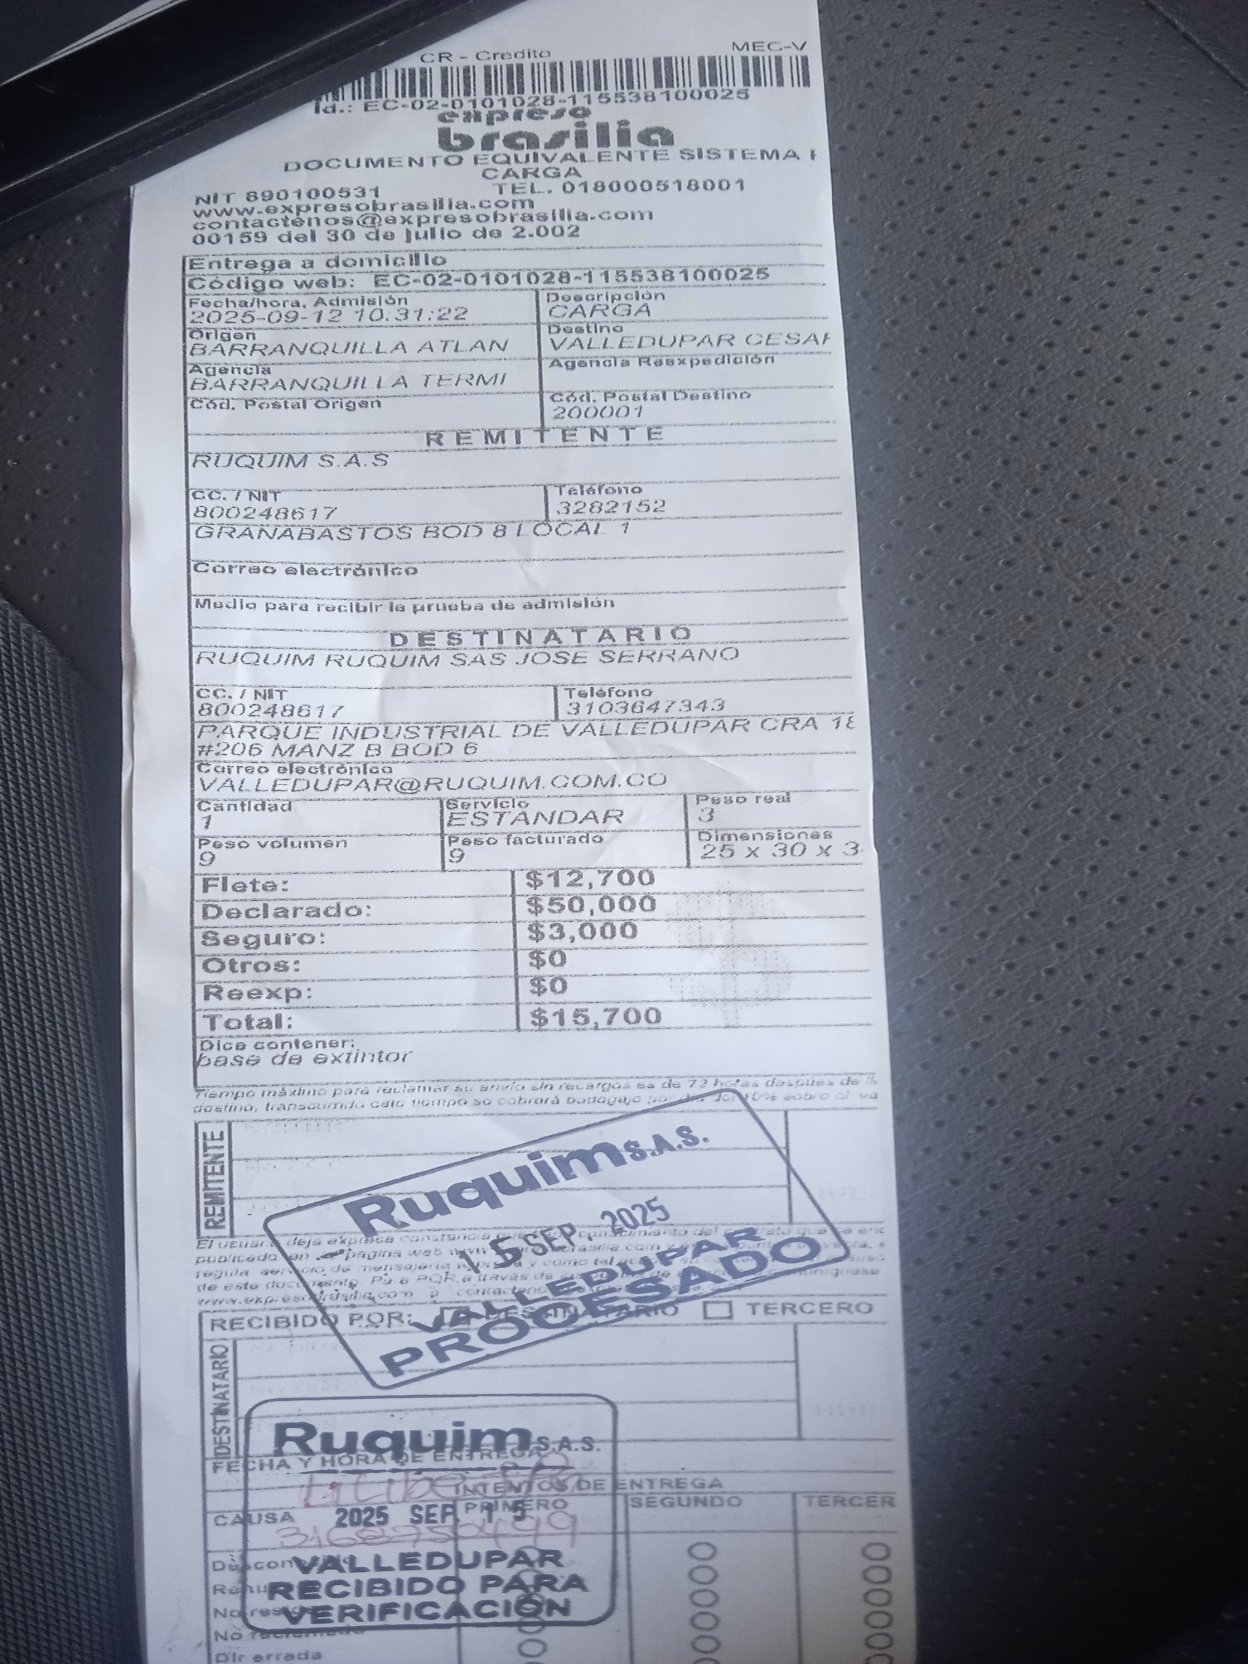 CR - Credito MEC-V
Id.: EC-02-0101028-115538100025
expreso
brasilia
DOCUMENTO EQUIVALENTE SISTEMA
CARGA
NIT 890100531 TEL. 018000518001
www.expresobrasilia.com
contactenos@expresobrasilia.com
00159 del 30 de julio de 2.002
Entrega a domicilio
Código web: EC-02-0101028-115538100025
Fecha/hora. Admisión Descripción
2025-09-12 10:31:22 CARGA
Origen Destino
BARRANQUILLA ATLAN VALLEDUPAR CESAR
Agencia Agencia Reexpedición
BARRANQUILLA TERMI
Cód. Postal Origen Cód. Postal Destino
200001
REMITENTE
RUQUIM S.A.S
CC. / NIT Teléfono
800248617 3282152
GRANABASTOS BOD 8 LOCAL 1
Correo electrónico
Medio para recibir la prueba de admisión
DESTINATARIO
RUQUIM RUQUIM SAS JOSE SERRANO
CC. / NIT Teléfono
800248617 3103647343
PARQUE INDUSTRIAL DE VALLEDUPAR CRA 18
#206 MANZ B BOD 6
Correo electrónico
VALLEDUPAR@RUQUIM.COM.CO
Cantidad Servicio Peso real
1 ESTANDAR 3
Peso volumen Peso facturado Dimensiones
9 9 25 x 30 x 3
Flete: $12,700
Declarado: $50,000
Seguro: $3,000
Otros: $0
Reexp: $0
Total: $15,700
Dice contener:
base de extintor
Tiempo máximo para reclamar su envío sin recargos es de 72 horas después de
destino, transcurrido este tiempo se cobrará bodegaje por
REMITENTE
Ruquim S.A.S.
15 SEP. 2025
VALLEDUPAR
PROCESADO
El usuario deja expresa constancia
publicado en página web
www.expresobrasilia.com
RECIBIDO POR: DESTINATARIO TERCERO
DESTINATARIO
Ruquim S.A.S.
FECHA Y HORA DE ENTREGA
INTENTOS DE ENTREGA
CAUSA PRIMERO SEGUNDO TERCER
2025 SEP 15
VALLEDUPAR
RECIBIDO PARA
VERIFICACIÓN
No reclamado
Dir errada